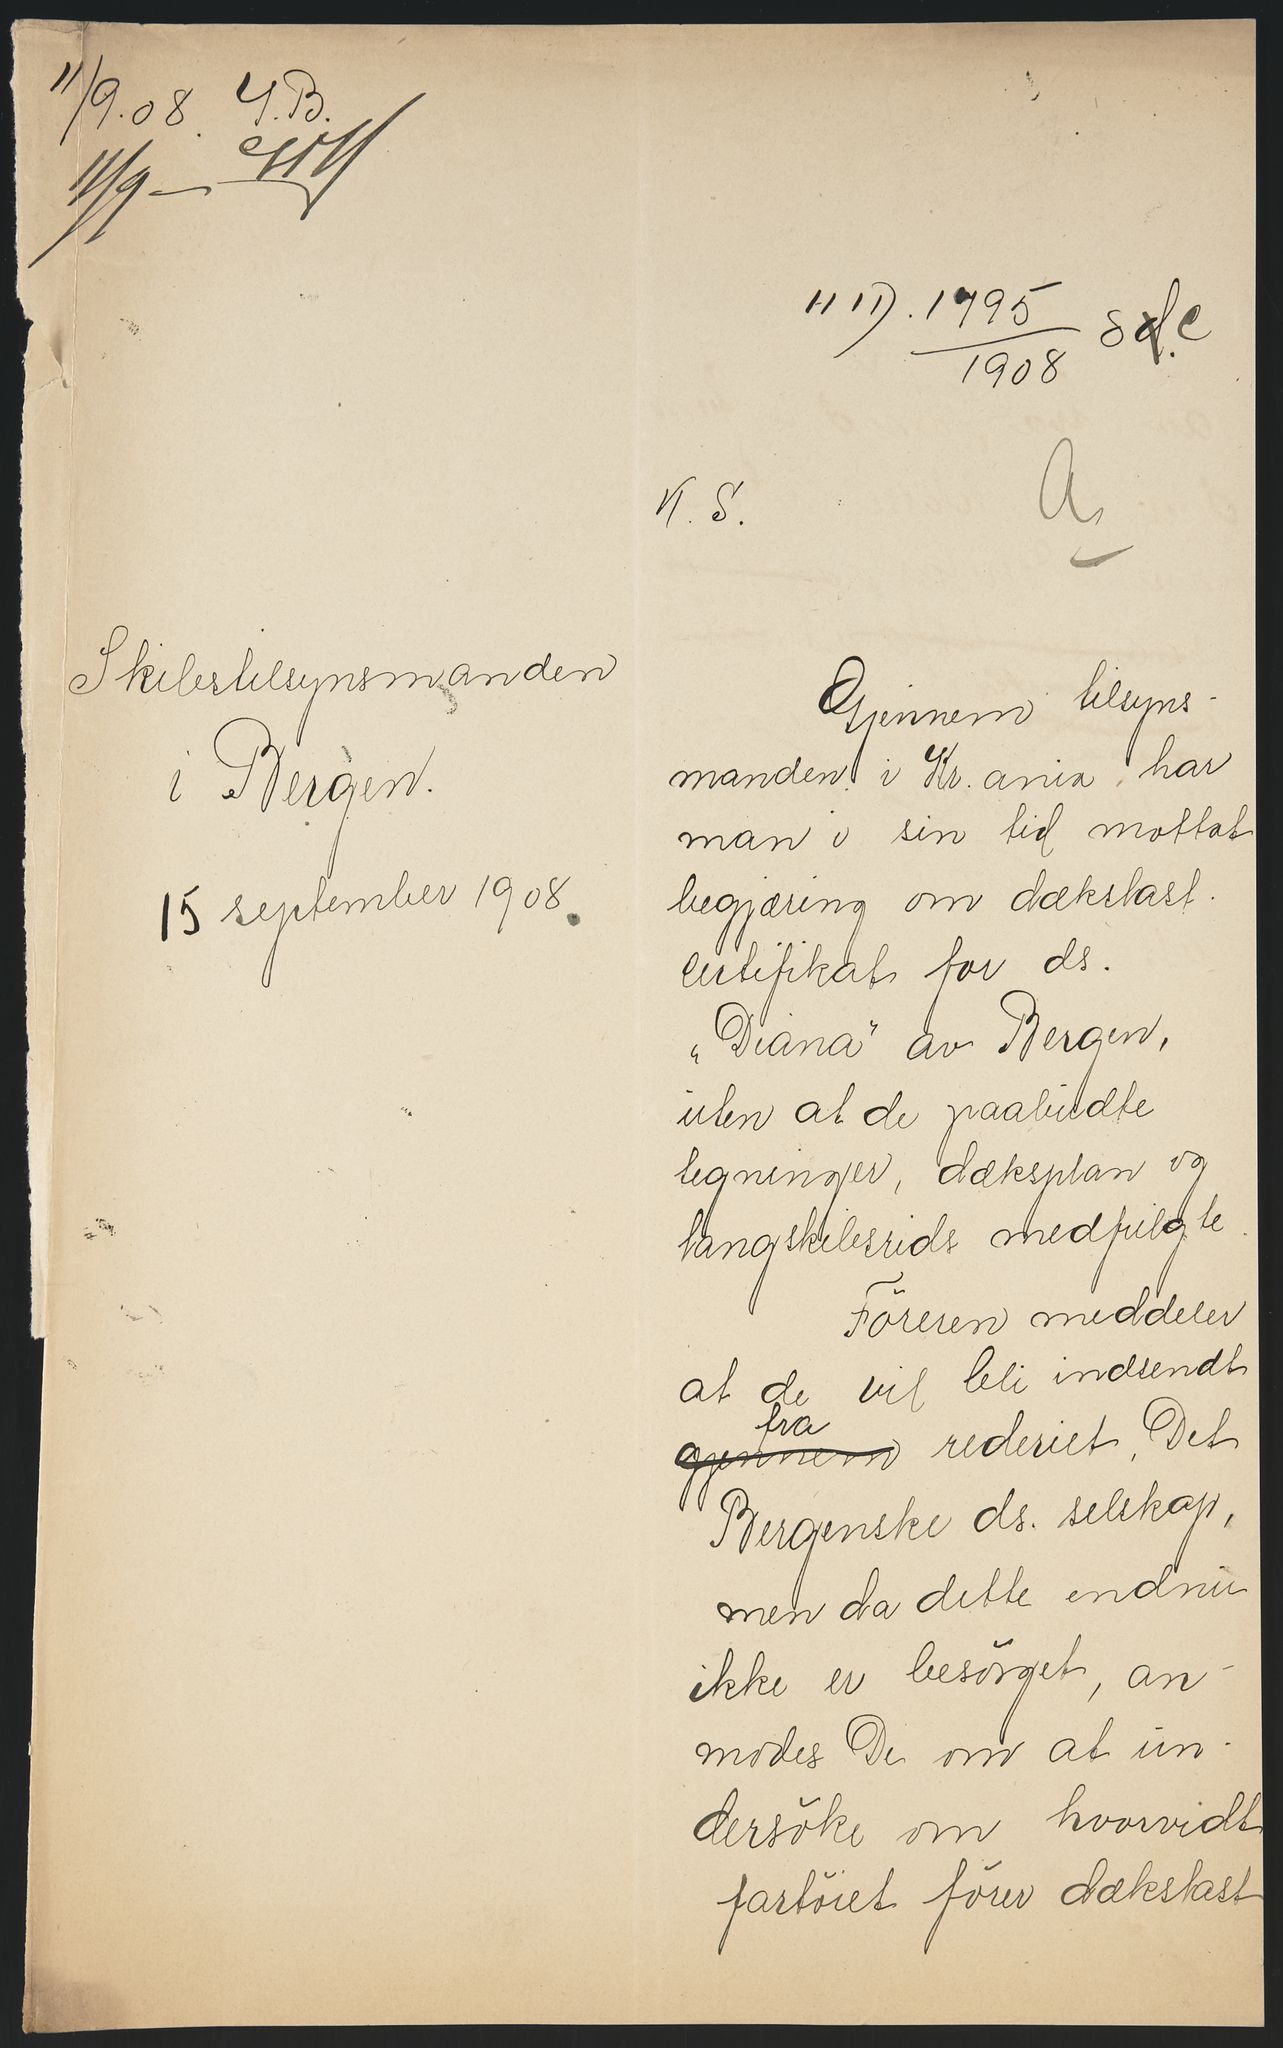 11/9.08. Y.B.
11/9 –
1795
1908
K. S.
A
Skibstilsynsmanden
i Bergen.
15 september 1908.
Gjennem tilsyns-
manden i Kr.ania har
man i sin tid mottat
begjæring om dækslast-
certifikat for ds.
„Diana" av Bergen,
uten at de paabudte
tegninger, dæksplan og
langskibsrids medfulgte.
Föreren meddeler
at de vil bli indsendt
fra
gjennem rederiet, Det
Bergenske ds. selskap,
men da dette endnu
ikke er besörget, an-
modes De om at un-
dersöke om hvorvidt
fartöiet förer dækslast